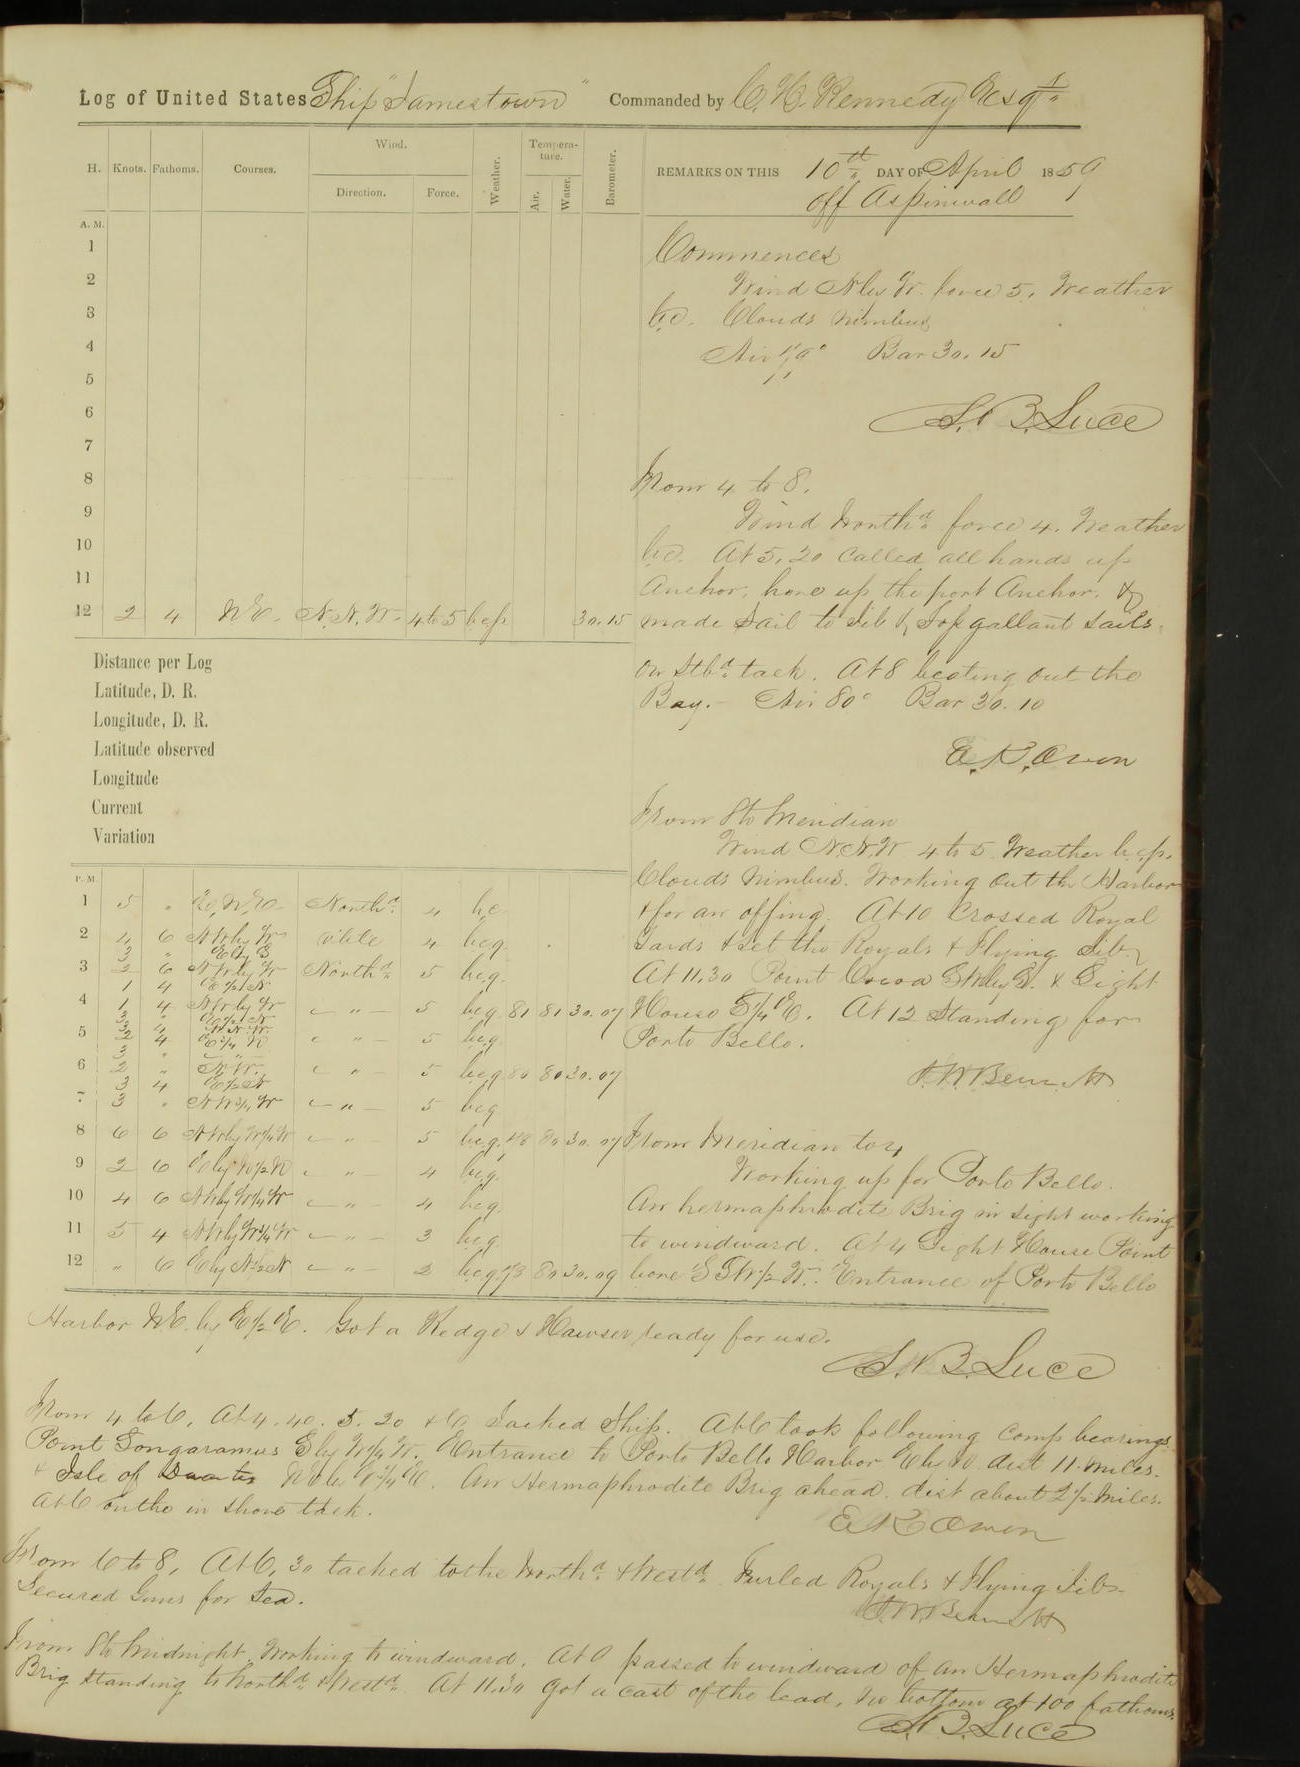 Log of United States Ship "Jamestown" Commanded by C. H. Kennedy Esqr.
H. Knots. Fathoms. Courses. Wind. Direction. Force. Weather. Tempera-ture. Air. Water. Barometer.
REMARKS ON THIS 10th DAY OF April 1859
off Aspinwall
A. M.
1
2
3
4
5
6
7
8
9
10
11
12 2 4 NE. N.N.W. 4 to 5 b.c.p. 30.15
Distance per Log
Latitude, D. R.
Longitude, D. R.
Latitude observed
Longitude
Current
Variation
P. M.
1 5 " North'd. 4 b.c.
2 4 6 NW by W 4 b.c.q.
3 " E by S
3 2 6 NW by W North'd 5 b.c.q.
1 4 E 1/2 N
4 1 4 NW by W " 5 b.c.q. 81 81 30.07
5 2 4 " 5 b.c.q.
6 2 " N.W. " 5 b.c.q. 80 80 30.07
3 4 E 1/2 N
7 3 " NW 3/4 W " 5 b.c.q.
8 6 6 NW by W 1/4 W " 5 b.c.q. 80 30.07
9 2 6 E by N 1/2 N " 4 b.c.q.
10 4 6 NW by W 1/4 W " 4 b.c.q.
11 5 4 NW by W 3/4 W " 3 b.c.q.
12 " 6 E by N 1/2 N " 2 b.c.q. 80 30.09
Commences
Wind N by W. force 5. Weather
b.c. Clouds Nimbus
Air Bar 30.15
S. B. Luce
From 4 to 8.
Wind North'd. force 4. Weather
b.c. At 5.20 called all hands up
Anchor, hove up the port Anchor. &
made sail to Jib & Topgallant sails
on Stb'd. tack. At 8 beating out the
Bay. Air 80° Bar 30.10
E. K. Owen
From 8 to Meridian
Wind N.N.W 4 to 5 Weather b.c.p.
Clouds Nimbus. Working out the Harbor
& for an offing. At 10 Crossed Royal
Yards & set the Royals & Flying Jib.
At 11.30 Point Cocoa SW by S. & Light
House S 1/4 E. At 12 Standing for
Porto Bello.
From Meridian to 4
Working up for Porto Bello.
An hermaphrodite Brig in sight working
to windward. At 4 Light House Point
bore SSW 1/2 W. Entrance of Porto Bello
Harbor NE. by E 1/2 E. Got a Kedge & Hawser ready for use.
S. B. Luce
From 4 to 6. At 4.40. 5.20 & 6 Tacked Ship. At 6 took following Comp bearings
Point S by W 1/4 W. Entrance to Porto Bello Harbor E by N. dist 11 miles.
& Isle of NE by E 3/4 E. An Hermaphrodite Brig ahead. dist about 2 1/2 miles.
At 6 on the in shore tack.
E K Owen
From 6 to 8, At 6,30 tacked to the North'd. & West'd. Furled Royals & Flying Jib
Secured Guns for Sea.
From 8 to Midnight. Working to windward. At passed to windward of an Hermaphrodite
Brig standing to North'd. & West'd. At 11.30 got a cast of the lead, no bottom at 100 fathoms.
S. B. Luce